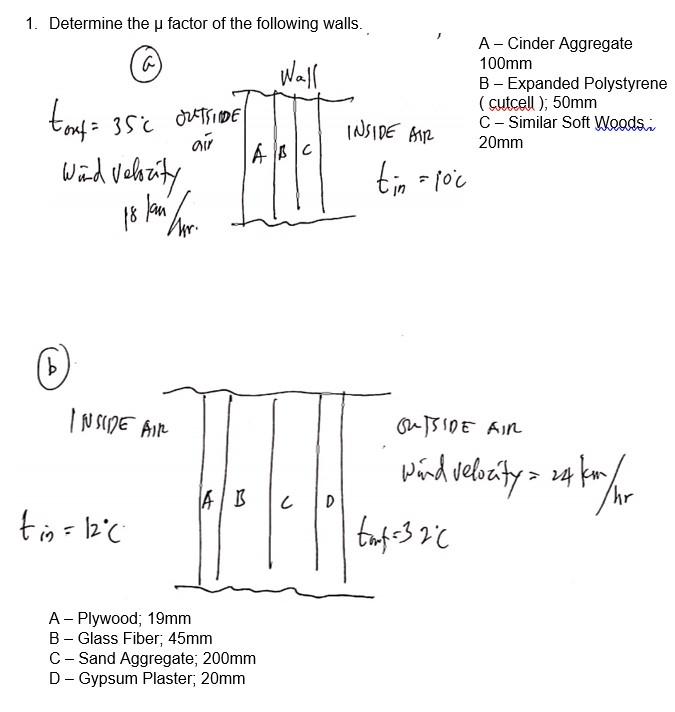 1. Determine the μ factor of the following walls.
A – Cinder Aggregate
100mm
B – Expanded Polystyrene
( cutcell ); 50mm
C – Similar Soft Woods ;
20mm
a
Wall
tout = 35°C OUTSIDE
air
INSIDE AIR
A B C
Wind velocity
18 km/hr.
tin = 10°C
b
INSIDE AIR
OUTSIDE AIR
Wind velocity = 24 km/hr
A B C D
tin = 12°C
tout = 32°C
A – Plywood; 19mm
B – Glass Fiber; 45mm
C – Sand Aggregate; 200mm
D – Gypsum Plaster; 20mm